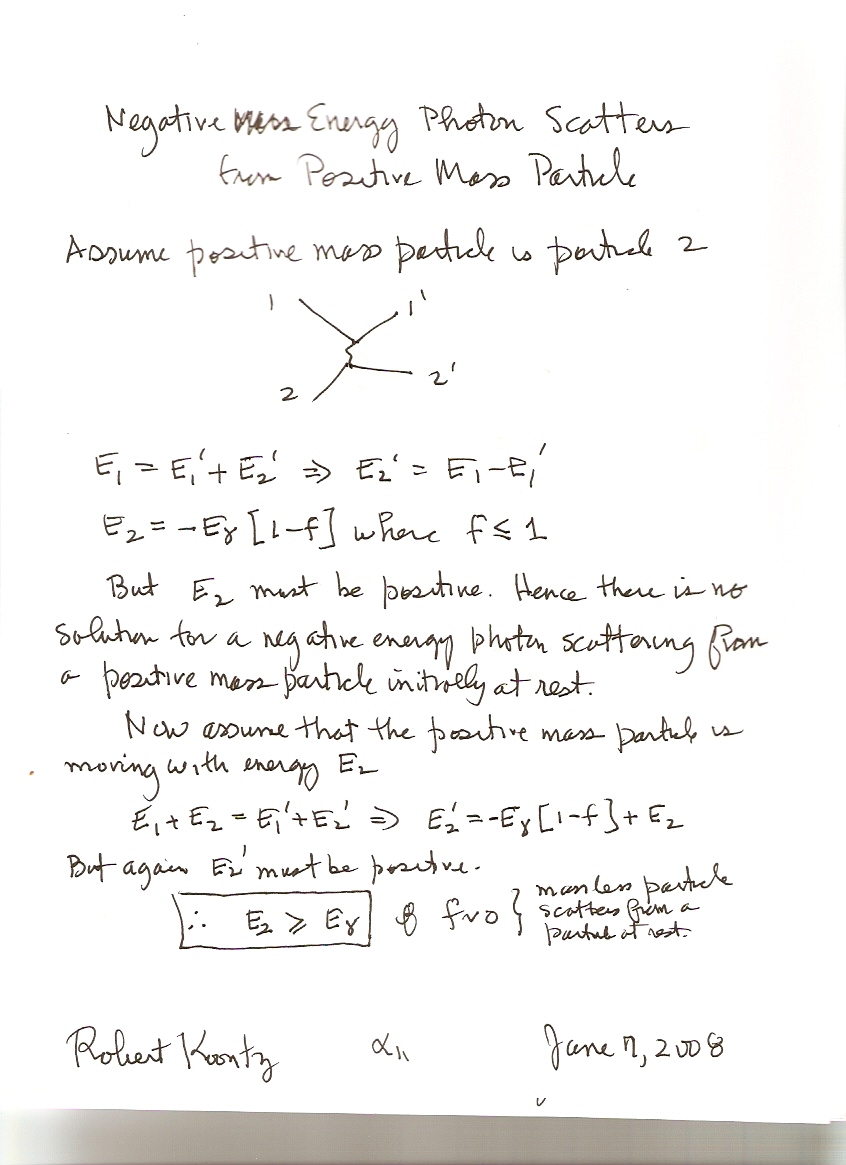 Negative Energy Photon Scatters
from Positive Mass Particle
Assume positive mass particle is particle 2
1 1'
2 2'
E₁ = E₁' + E₂' ⇒ E₂' = E₁ - E₁'
E₂ = -Eγ [1-f] where f ≤ 1
But E₂ must be positive. Hence there is no
solution for a negative energy photon scattering from
a positive mass particle initially at rest.
Now assume that the positive mass particle is
moving with energy E₂
E₁ + E₂ = E₁' + E₂' ⇒ E₂' = -Eγ [1-f] + E₂
But again E₂' must be positive.
∴ E₂ ≥ Eγ f~0 } massless particle
scatters from a
particle at rest.
Robert Koontz α₁₁ June 7, 2008